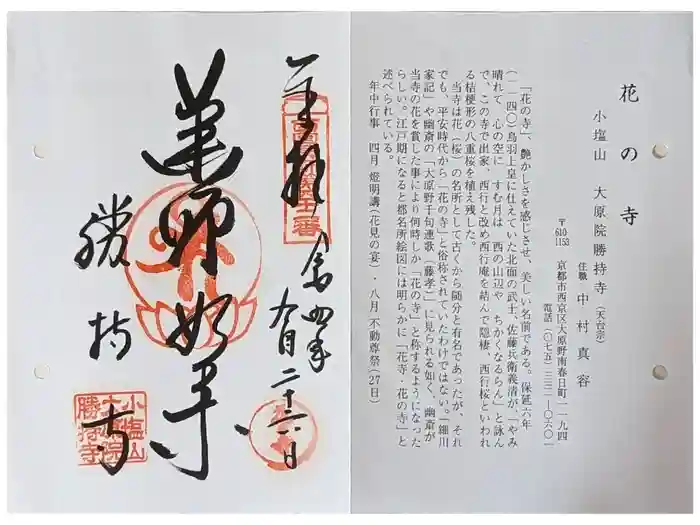 花の寺
小塩山 大原院勝持寺(天台宗)
住職 中村真容
〒610-1153 京都市西京区大原野南春日町一一九四
電話(〇七五)三三一-〇六〇一
「花の寺」、艶かしさを感じさせ、美しい名前である。保延六年
(一一四〇)鳥羽上皇に仕えていた北面の武士、佐藤兵衛義清が、「やみ
晴れて 心の空に すむ月は 西の山辺や ちかくなるらん」と詠ん
で、この寺で出家、西行と改め西行庵を結んで隠棲、西行桜といわれ
る桔梗形の八重桜を植え残した。
当寺は花(桜)の名所として古くから随分と有名であったが、それ
でも、平安時代から「花の寺」と俗称されていたわけではない。「細川
家記」や幽斎の「大原野千句連歌(藤孝)」に見られる如く、幽斎が
当寺の花を賞した事により何時しか「花の寺」と称するようになった
らしい。江戸期になると都名所絵図には明らかに「花寺・花の寺」と
述べられている。
年中行事 四月 燈明講(花見の宴)・八月 不動尊祭(27日)
奉拝
令四年
九月二十六日
勝持寺
小塩山
大原院
勝持寺